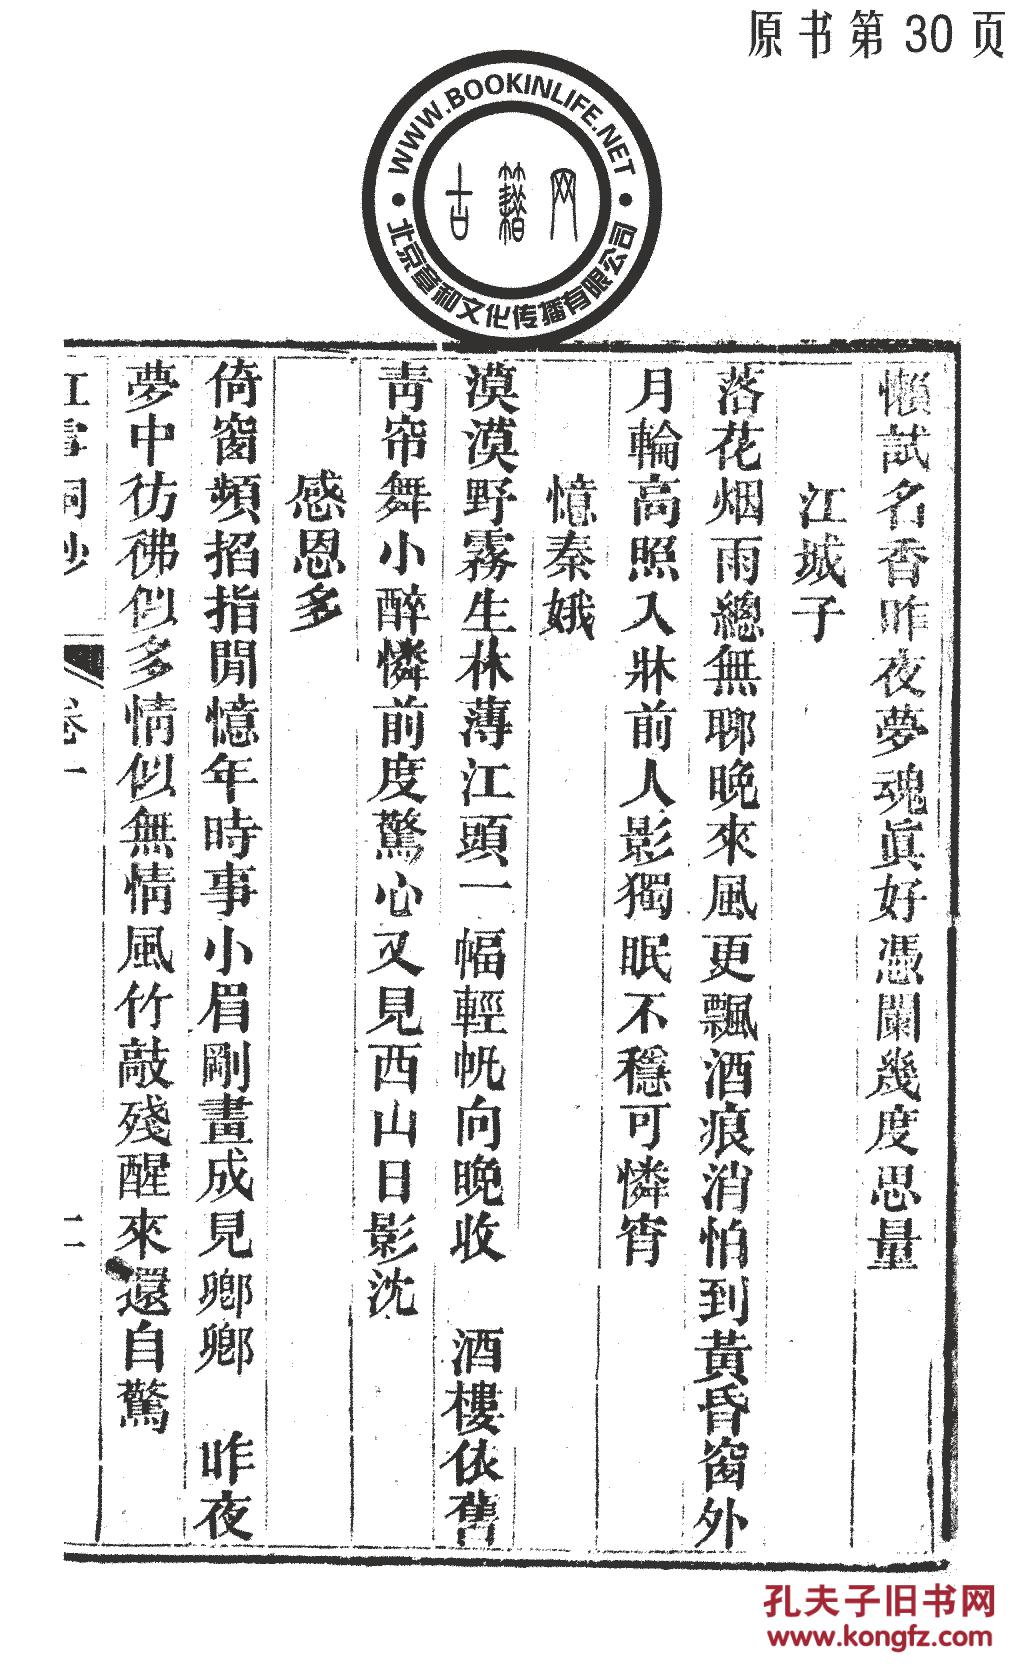 原书第30页
WWW.BOOKINLIFE.NET
古籍网
北京章和文化传播有限公司
懶試名香昨夜夢魂眞好憑闌幾度思量
江城子
落花烟雨總無聊晚來風更飄酒痕消怕到黃昏窗外
月輪高照入牀前人影獨眠不穩可憐宵
憶秦娥
漠漠野霧生林薄江頭一幅輕帆向晚收　酒樓依舊
靑帘舞小醉憐前度驚心又見西山日影沈
感恩多
倚窗頻掐指閒憶年時事小眉剛畫成見卿卿　昨夜
夢中彷彿似多情似無情風竹敲殘醒來還自驚
紅雪詞鈔　卷一　二
孔夫子旧书网
www.kongfz.com